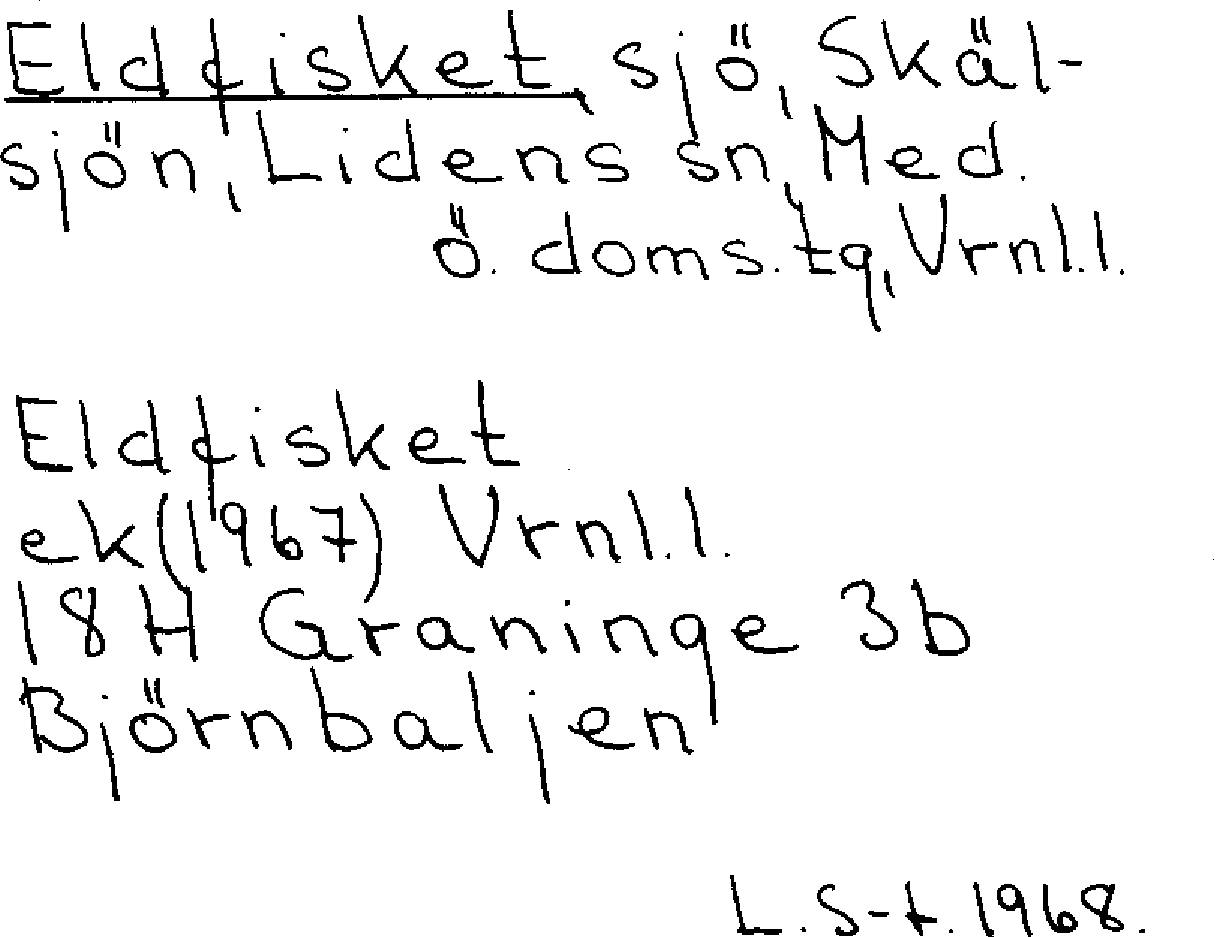 Eldfisket, sjö, Skäl-
sjön, Lidens sn, Med.
Ö. doms.tg, Vrnl.l.
Eldfisket
ek(1967) Vrnl.l.
18H Graninge 3b
Björnbaljen
L.S-t. 1968.